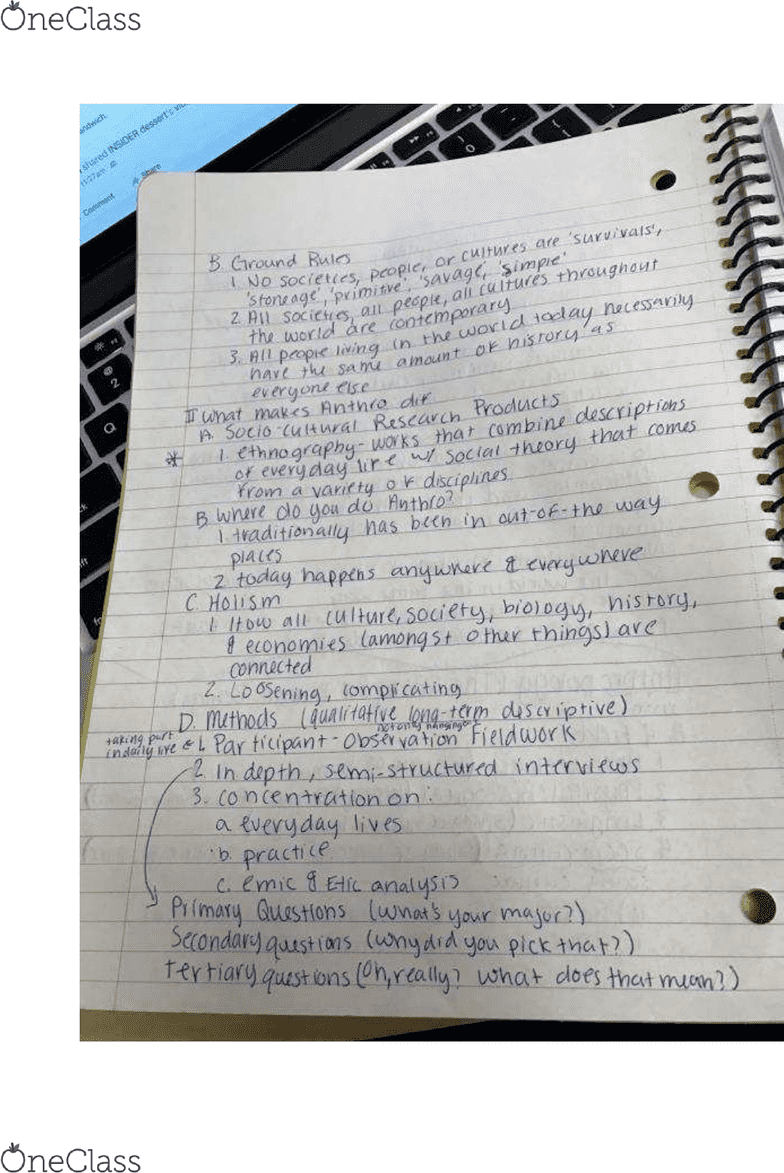 OneClass
andwich.
shared INSIDER dessert's
11:27am
Share
Comment
B. Ground Rules
1. No societies, people, or cultures are 'survivals',
'stoneage', 'primitive', 'savage, 'simple'
2. All societies, all people, all cultures throughout
the world are contemporary
3. All people living in the world today necessarily
have the same amount of history as
everyone else
II What makes Anthro dif
A. Socio-cultural Research Products
* 1. ethnography-works that combine descriptions
of everyday life w/ social theory that comes
from a variety of disciplines
B. Where do you do Anthro?
1. traditionally has been in out-of-the way
places
2. today happens anywhere & everywhere
C. Holism
1. How all culture, society, biology, history,
& economies (amongst other things) are
connected
2. Loosening, complicating
D. Methods (qualitative long-term descriptive)
not only hanging out
taking part
in daily live
1. Participant-Observation Fieldwork
2. In depth, semi-structured interviews
3. concentration on:
a. everyday lives
b. practice
c. emic & Etic analysis
Primary Questions (What's your major?)
Secondary questions (why did you pick that?)
Tertiary questions (Oh, really? what does that mean?)
OneClass